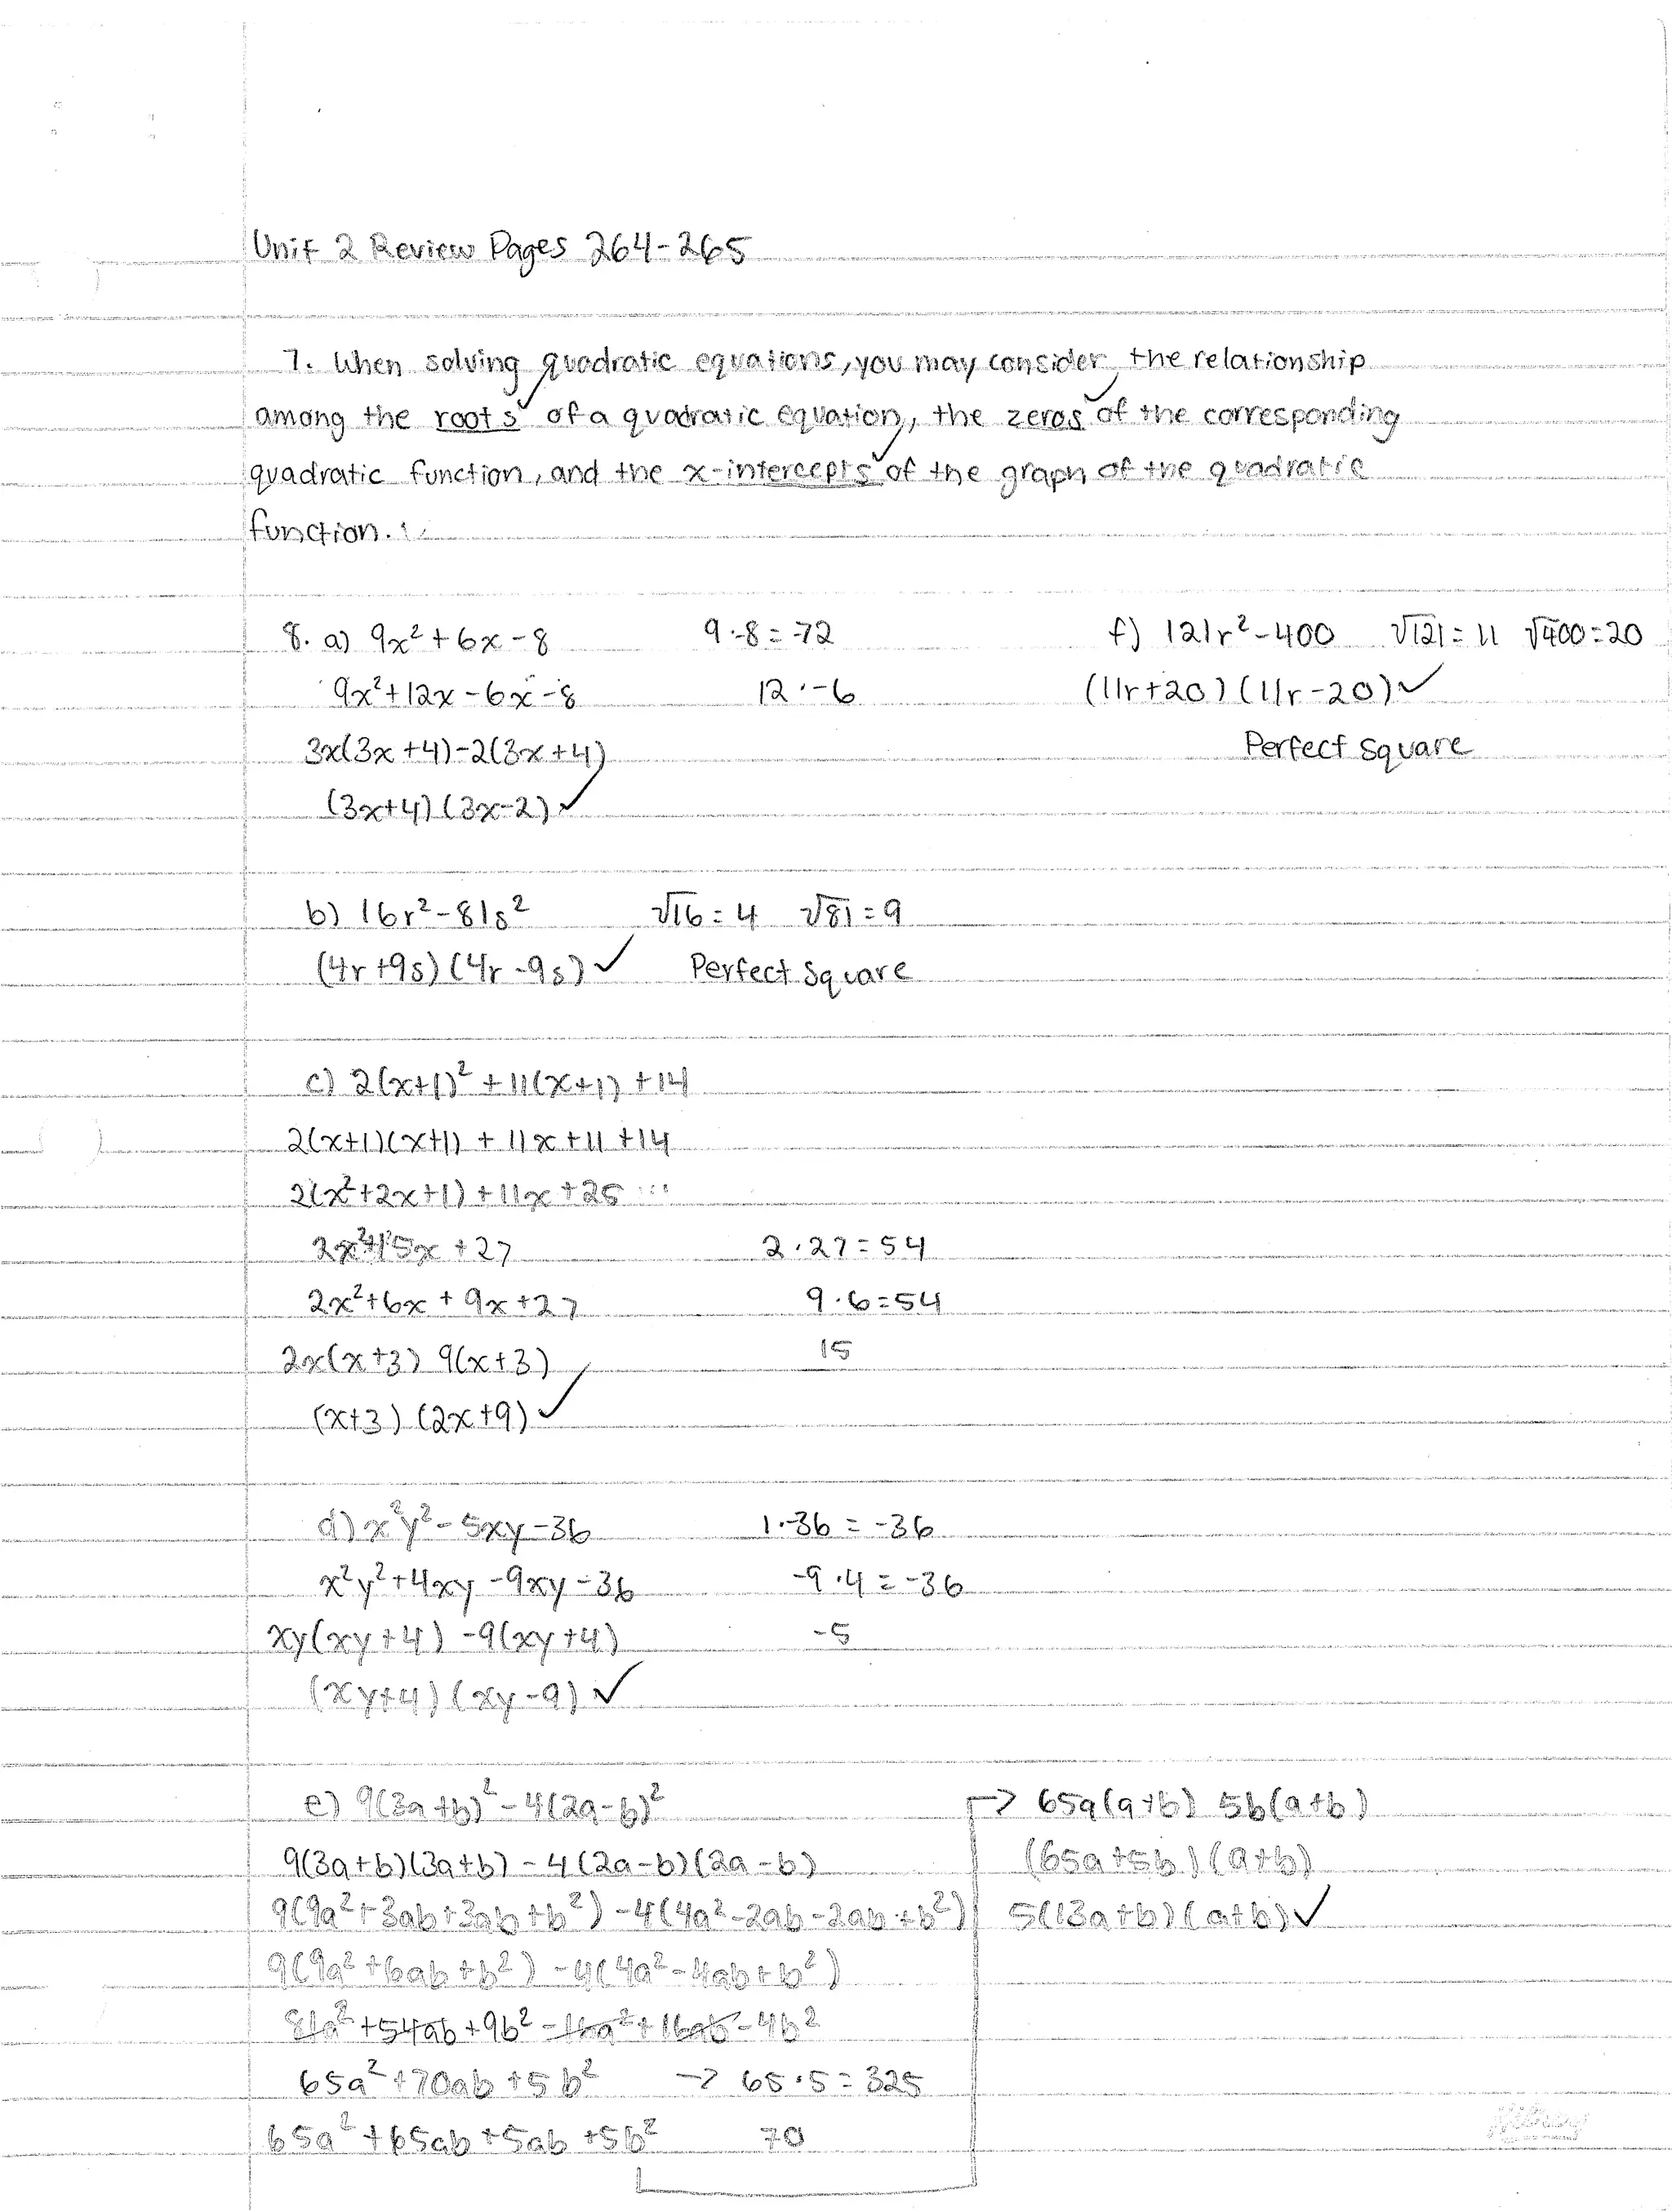 Unit 2 Review Pages 264-265
7. When solving quadratic equations, you may consider the relationship
among the roots ✓ of a quadratic equation, the zeros ✓ of the corresponding
quadratic function, and the x-intercepts ✓ of the graph of the quadratic
function.
8. a) 9x² + 6x - 8 9·-8 = -72
9x² + 12x - 6x - 8 12·-6
3x(3x + 4) - 2(3x + 4)
(3x+4)(3x-2) ✓
f) 121r² - 400 √121 = 11 √400 = 20
(11r+20)(11r-20) ✓
Perfect Square
b) 16r² - 81s² √16 = 4 √81 = 9
(4r+9s)(4r-9s) ✓ Perfect Square
c) 2(x+1)² + 11(x+1) + 14
2(x+1)(x+1) + 11x + 11 + 14
2(x²+2x+1) + 11x + 25
2x²+15x + 27 2·27 = 54
2x²+6x + 9x + 27 9·6 = 54
2x(x+3) 9(x+3) 15
(x+3)(2x+9) ✓
d) x²y² - 5xy - 36 1·-36 = -36
x²y² + 4xy - 9xy - 36 -9·4 = -36
xy(xy + 4) - 9(xy + 4) -5
(xy+4)(xy-9) ✓
e) 9(3a+b)² - 4(2a-b)²
9(3a+b)(3a+b) - 4(2a-b)(2a-b)
9(9a²+3ab+3ab+b²) - 4(4a²-2ab-2ab+b²)
9(9a²+6ab+b²) - 4(4a²-4ab+b²)
81a² + 54ab + 9b² - 16a² + 16ab - 4b²
65a² + 70ab + 5b² → 65·5 = 325
65a² + 65ab + 5ab + 5b² 70
→ 65a(a+b) 5b(a+b)
(65a+5b)(a+b)
5(13a+b)(a+b) ✓